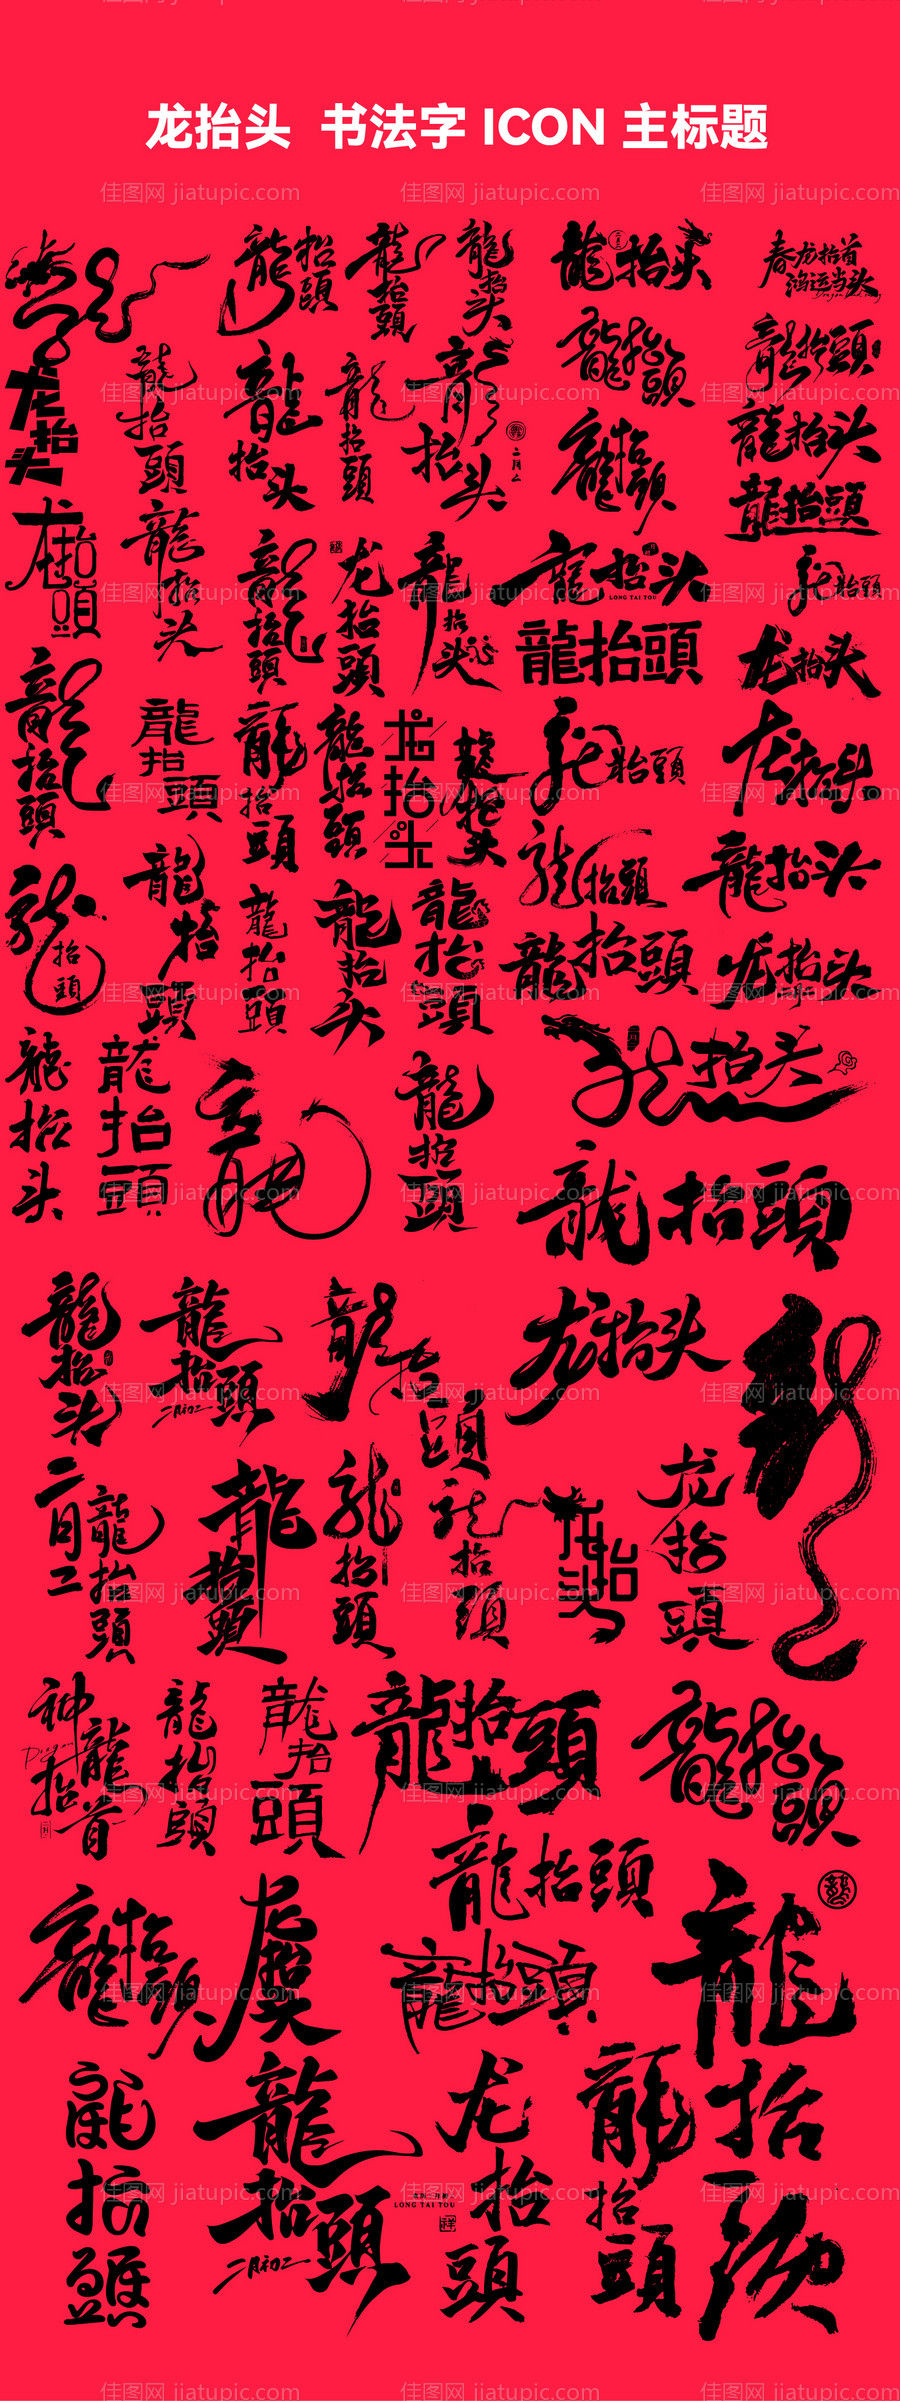 龙抬头 书法字 ICON 主标题
佳图网 jiatupic.com
龍抬頭
龍抬頭
龍抬头
龍抬头
春龙抬首
鸿运当头
龙抬头
龍抬頭
龍抬头
龍抬頭
龍抬头
二月二
龍抬頭
龍抬頭
龍抬頭
龍抬头
龍抬頭
龙抬頭
龍抬头
龍抬頭
龙抬頭
龍抬头
龍抬头
LONG TAI TOU
龍抬頭
龍抬頭
龙抬头
龍抬頭
龍抬頭
龍抬頭
龍抬頭
龙抬头
龍抬头
龍抬頭
龙抬头
龍抬頭
龍抬頭
龍抬头
龍抬頭
龍抬头
龍抬頭
龍抬頭
龙抬头
龙抬头
龍抬头
龍抬頭
龍
龍抬頭
龍抬頭
龍抬头
龍抬頭
二月初二
龍抬頭
龙抬头
二月二
龍抬頭
龍抬頭
龍抬頭
龙抬頭
龙抬头
龙抬頭
神龍抬首
Dragon
龍抬頭
龍抬頭
龍抬頭
龍抬頭
龍抬頭
龍抬頭
龙抬头
龍抬頭
龍抬头
龍抬頭
龍抬頭
二月初二
龙抬頭
LONG TAI TOU
祥
龍抬頭